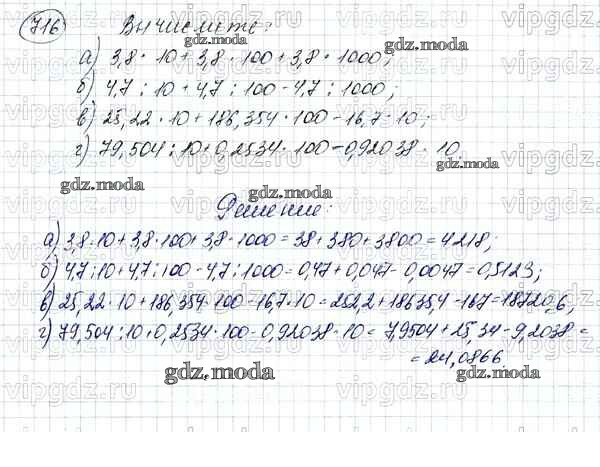 716 Вычислите:
а) 3,8 · 10 + 3,8 · 100 + 3,8 · 1000;
б) 4,7 : 10 + 4,7 : 100 - 4,7 : 1000;
в) 25,22 · 10 + 186,354 · 100 - 16,7 · 10;
г) 79,504 : 10 + 0,2534 · 100 - 0,92038 · 10.
Решение:
а) 3,8 · 10 + 3,8 · 100 + 3,8 · 1000 = 38 + 380 + 3800 = 4218;
б) 4,7 : 10 + 4,7 : 100 - 4,7 : 1000 = 0,47 + 0,047 - 0,0047 = 0,5123;
в) 25,22 · 10 + 186,354 · 100 - 16,7 · 10 = 252,2 + 18635,4 - 167 = 18720,6;
г) 79,504 : 10 + 0,2534 · 100 - 0,92038 · 10 = 7,9504 + 25,34 - 9,2038 =
= 24,0866
gdz.moda
gdz.moda
gdz.moda
gdz.moda
gdz.moda
gdz.moda
gdz.moda